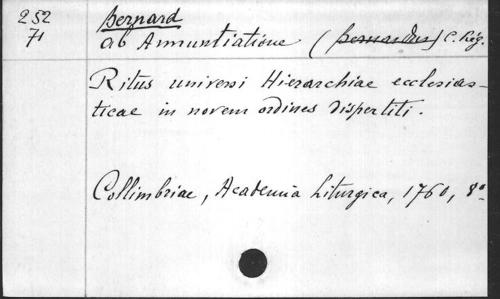 252
71
Bernard
ab Annuntiatione (Bernardus) C. Rég.
Ritus universi Hierarchiae ecclesias-
ticae in novem ordines dispertiti.
Collimbriae, Academia Liturgica, 1760, 8º